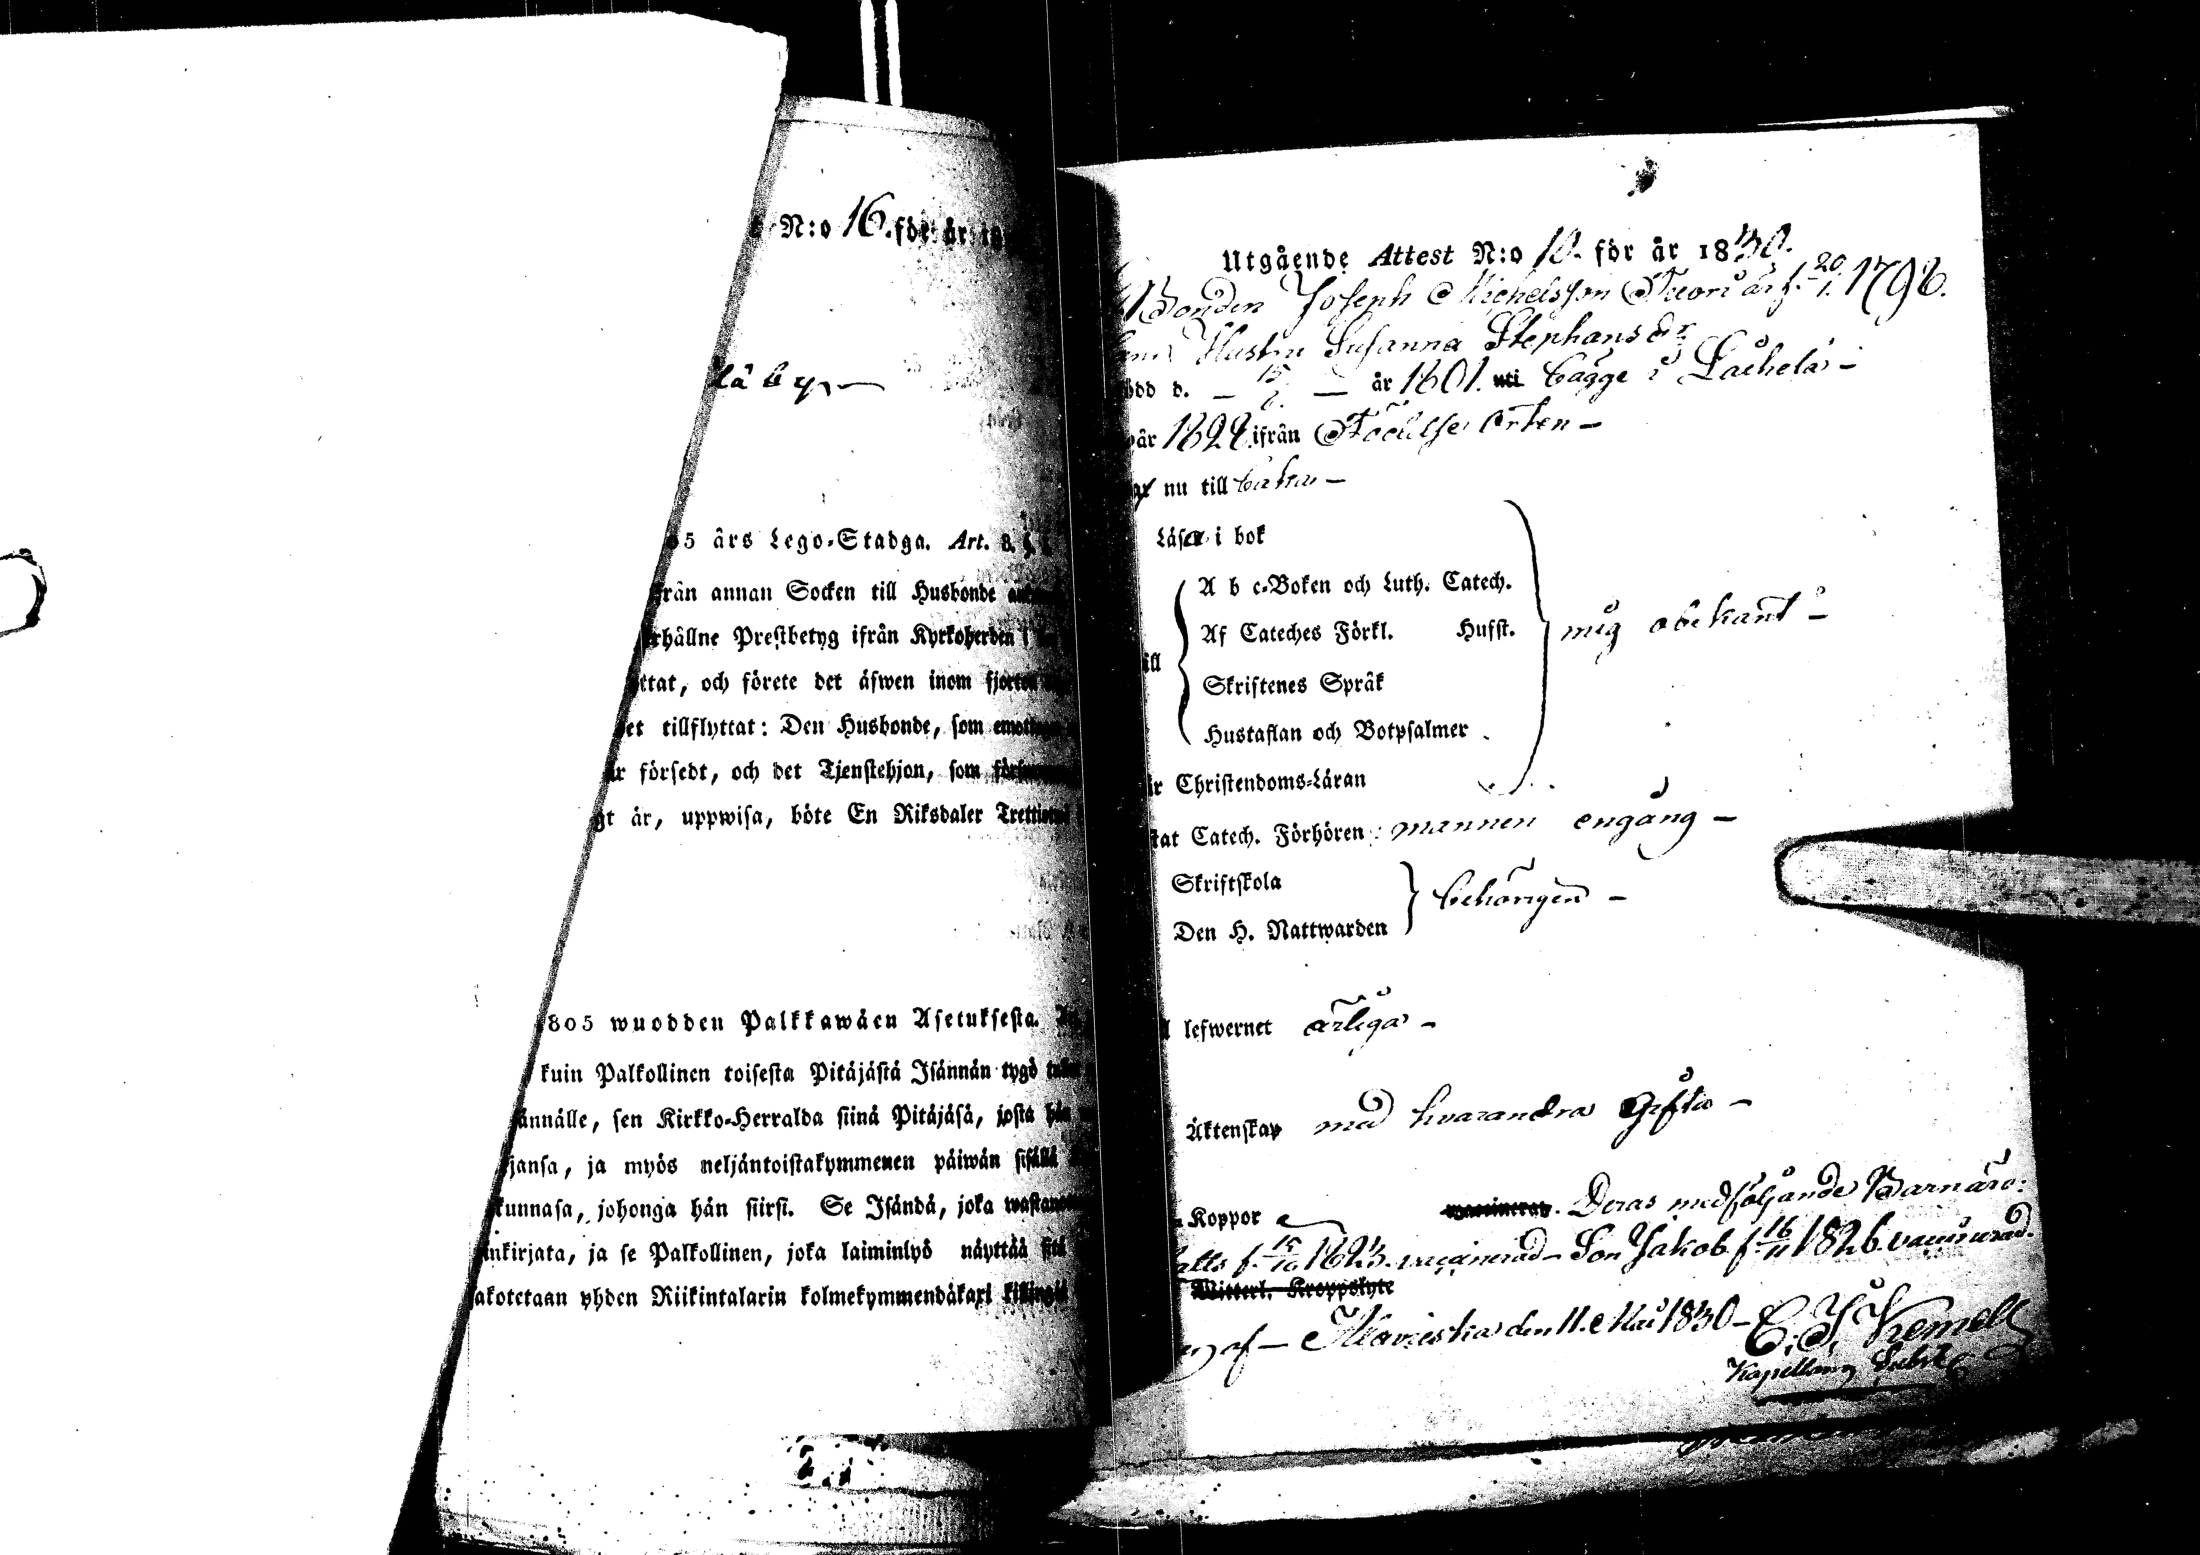 N:o 16. för år 18
by
5 års Lego-Stadga. Art. 8. §.
från annan Socken till Husbonde
erhållne Prestbetyg ifrån Kyrkoherden i
ttat, och förete det äfwen inom fjorton
et tillflyttat: Den Husbonde, som emottager
är försedt, och det Tjenstehjon, som
gt är, uppwisa, böte En Riksdaler Trettiotwå
805 wuodden Palkkawäen Asetuksesta.
kuin Palkollinen toisesta Pitäjästä Isännän tygö
ännälle, sen Kirkko-Herralda siinä Pitäjäsä, josta hän
jansa, ja myös neljäntoistakymmenen päiwän sisällä
kunnasa, johonga hän siirsi. Se Isändä, joka
inkirjata, ja se Palkollinen, joka laiminlyö näyttää sitä
akotetaan yhden Riikintalarin kolmekymmendäkaxi killingiä
Utgående Attest N:o 10. för år 1830.
Bonden Joseph Michelsson Tuori är f. 20/1. 1798.
Hustru Susanna Stephansdr
ödd d. – 15/6. – år 1801. uti bägge i Lachela –
år 1828. ifrån Födelse Orten –
nu till baka –
Läsa i bok
A b c-Boken och Luth. Catech.
Af Cateches Förkl. Hufst.
mig obekant –
Skriftenes Språk
Hustaflan och Botpsalmer
r Christendoms-Läran
tat Catech. Förhören: mannen engång –
Skriftskola
behörigen –
Den H. Nattwarden
lefwernet ärliga –
Äktenskap med hvarandra gifta –
Koppor vaccinerad. Deras medföljande Barn äro:
f. 15/10 1823. vaccinerad – Son Jakob f. 16/11 1826. vaccinerad.
Witterl. Kroppslyte
af – den 11. Maii 1830 –
Kapellan